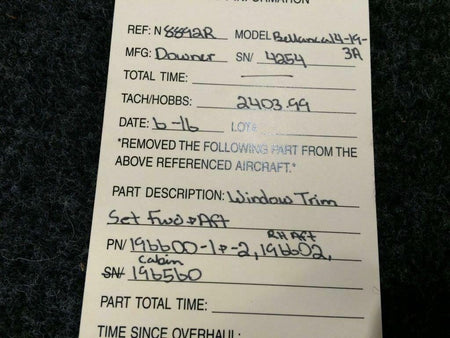 INFORMATION
REF: N 8892R MODEL Bellanca 14-19-3A
MFG: Downer SN/ 4254
TOTAL TIME:
TACH/HOBBS: 2403.99
DATE: 6-16 LOT#
"REMOVED THE FOLLOWING PART FROM THE
ABOVE REFERENCED AIRCRAFT."
PART DESCRIPTION: Window Trim
Set Fwd & Aft
RH Aft
PN/ 196600-1 & -2, 196602,
Cabin
SN/ 196560
PART TOTAL TIME:
TIME SINCE OVERHAUL: